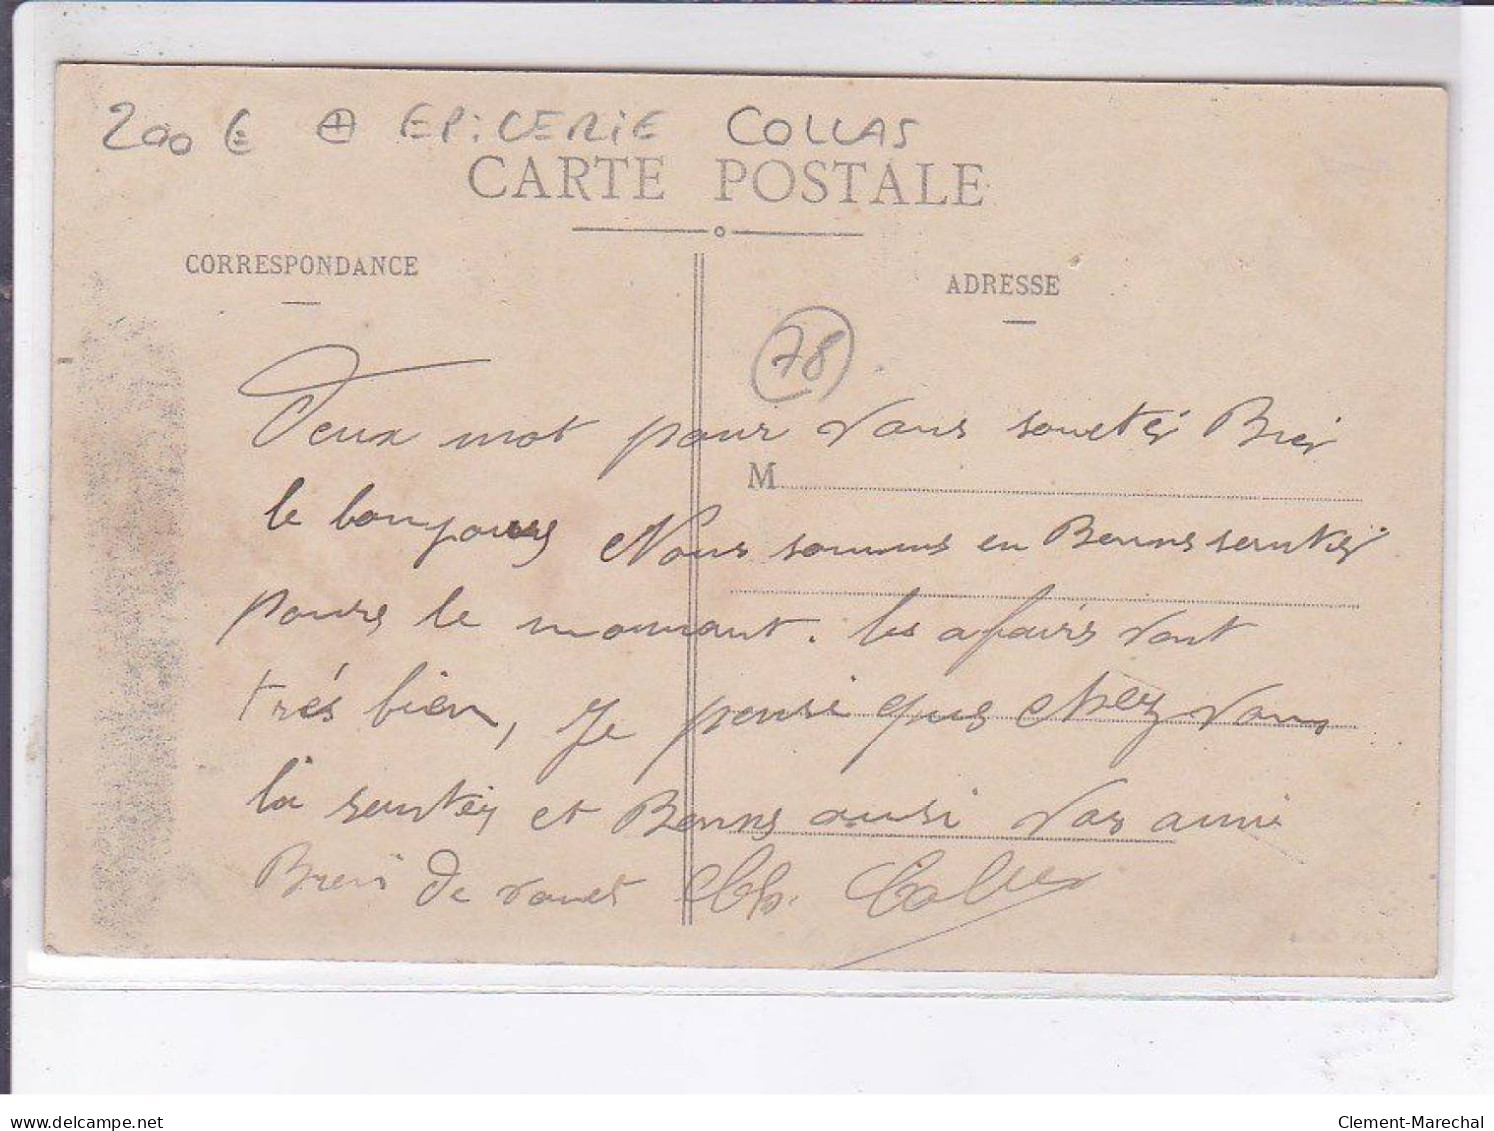 200 € ⊕ EPICERIE COLLAS
CARTE POSTALE
CORRESPONDANCE
ADRESSE
78
Deux mot pour vous souetér Bien
M
le bonjours Nous sommns en Bonns santéi
pours le momant. les afairs vont
trés bien, Je pensé que chez vous
la santéi et Bonns ausi Vos amie
Bien de vouet Ch. Collas
delcampe.net
Clement-Marechal